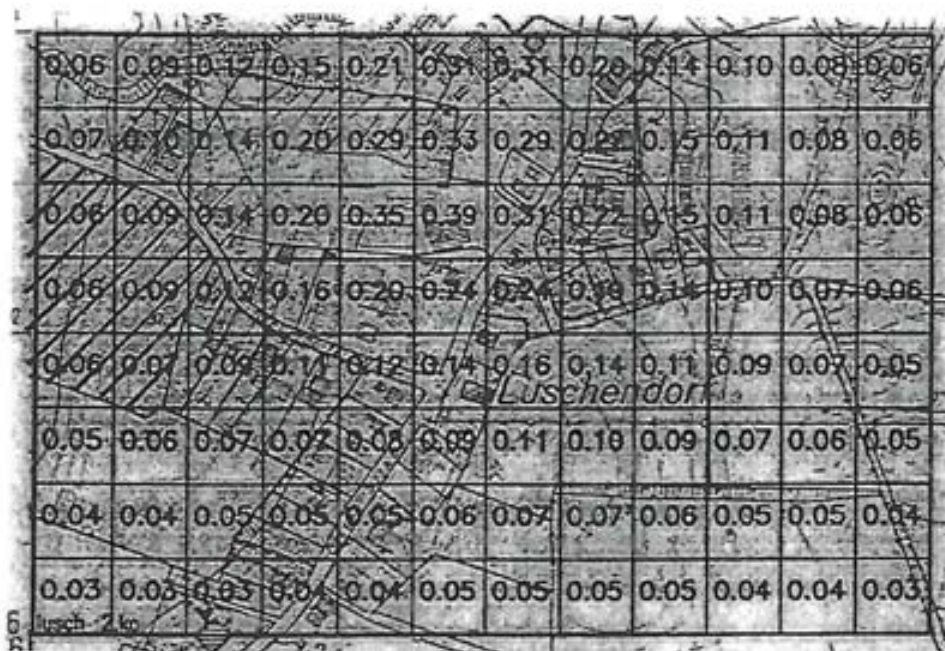 0.06 0.09 0.12 0.15 0.21 0.31 0.31 0.20 0.14 0.10 0.08 0.06
0.07 0.10 0.14 0.20 0.29 0.33 0.29 0.22 0.15 0.11 0.08 0.06
0.06 0.09 0.14 0.20 0.35 0.39 0.31 0.22 0.15 0.11 0.08 0.06
0.06 0.09 0.12 0.16 0.20 0.24 0.24 0.14 0.10 0.07 0.06
0.06 0.07 0.09 0.11 0.12 0.14 0.16 0.14 0.11 0.09 0.07 0.05
Luschendorf
0.05 0.06 0.07 0.07 0.08 0.09 0.11 0.10 0.09 0.07 0.06 0.05
0.04 0.04 0.05 0.05 0.05 0.06 0.07 0.07 0.06 0.05 0.05 0.04
0.03 0.03 0.03 0.04 0.04 0.05 0.05 0.05 0.05 0.04 0.04 0.03